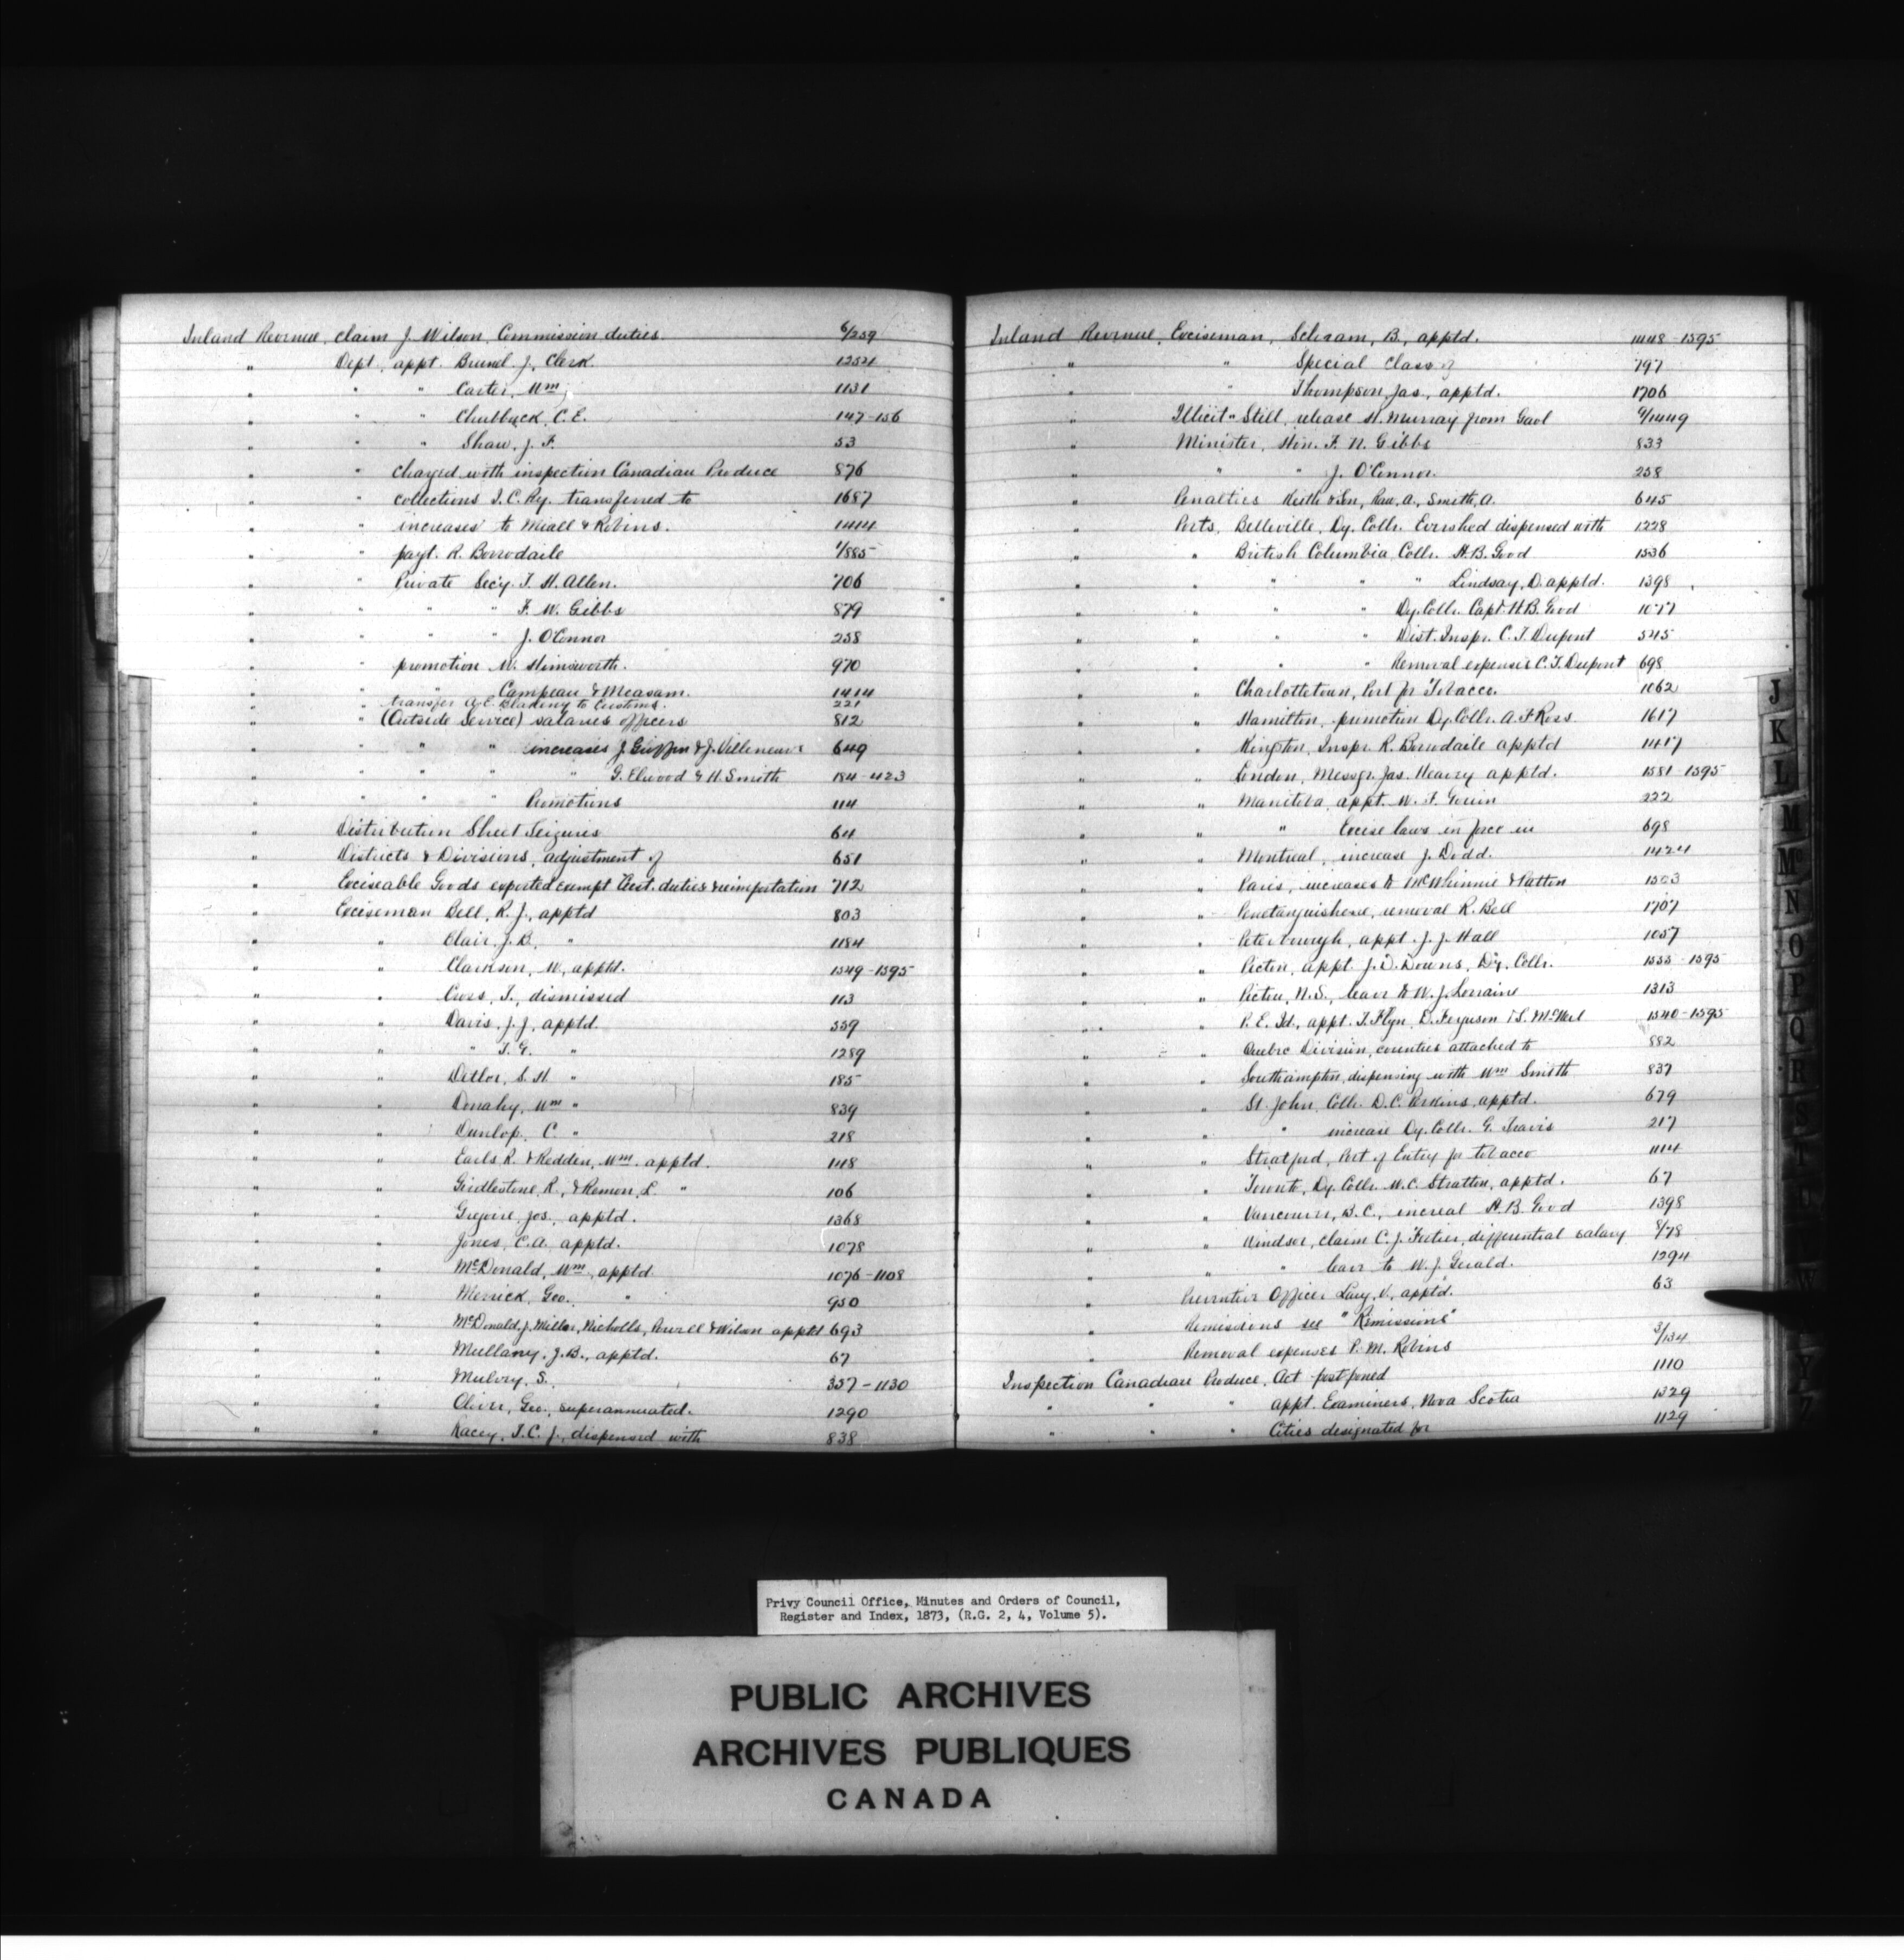 Inland Revenue, claim J. Wilson, Commission duties. 6/259
" Dept. appt. Brunel, J., Clerk. 1252
" " " Carter, Wm 1131
" " " Chubbuck, C.E. 147-156
" " " Shaw, J.F. 53
" " charged with inspection Canadian Produce 876
" " collections I.C. Ry. transferred to 1687
" " increases to Miall & Robins. 1444
" " payt. R. Borrodaile 1/885
" " Private Secy. T. H. Allen. 706
" " " " F. W. Gibbs 879
" " " " J. O'Connor 258
" " promotion W. Himsworth. 970
" " " Campeau & Measam. 1414
" " transfer to Customs. 221
" " (Outside Service) salaries officers 812
" " " " increases J. Griffin & J. Villeneuve 649
" " " " " G. Elwood & H. Smith 184-423
" " " " Promotions 114
" Distribution Sheet Seizures 64
" Districts & Divisions, adjustment of 651
" Exciseable Goods exported exempt Cust. duties reimportation 712
" Exciseman Bell, R. J., apptd 803
" " Clair, J. B., " 1184
" " Clarkson, W., apptd. 1549-1595
" " Cross, T., dismissed 113
" " Davis, J. J., apptd. 559
" " " T. G. " 1289
" " Detlor, S. H. " 185
" " Donahy, Wm " 839
" " Dunlop, C. " 218
" " Earls R. & Redden, Wm. apptd. 1118
" " Girdlestone, R., & Romon, L. " 106
" " Gregoire, Jos., apptd. 1368
" " Jones, C.A. apptd. 1078
" " McDonald, Wm, apptd. 1076-1108
" " Merrick, Geo. " 950
" " McDonald, J. Millar, Nicholls, Powell & Wilson apptd 693
" " Mullany, J.B., apptd. 67
" " Mulvey, S. 357-1130
" " Oliver, Geo., superannuated. 1290
" " Racey, T.C. J., dispensed with 838
Inland Revenue, Exciseman, Schram, B., apptd. 1448-1595
" " Special Class of 797
" " Thompson, Jas., apptd. 1706
" Illicit Still, release H. Murray from Gaol 9/1449
" Minister, Hon. F. N. Gibbs 833
" " " J. O'Connor. 258
" Penalties Keith & Son, Raw. A., Smith, A. 645
" Ports, Belleville, Dy. Collr. Evershed dispensed with 1228
" " British Columbia, Collr. H. B. Good 1536
" " " " " Lindsay, D. apptd. 1398
" " " " Dy. Collr. Capt. H.B. Good 1077
" " " " Dist. Inspr. C. T. Dupont 545
" " " " Removal expenses C. T. Dupont 698
" " Charlottetown, Port for Tobacco. 1062
" " Hamilton, promotion Dy. Collr. A. F. Ross 1617
" " Kingston, Inspr. R. Borrodaile apptd 1417
" " London, Messgr. Jas. Heavey apptd. 1581-1595
" " Manitoba, appt. W. F. Gouin 222
" " " Excise laws in force in 698
" " Montreal, increase J. Dodd. 1424
" " Paris, increases to McWhinnie & Patton 1503
" " Penetanguishene, removal R. Bell 1707
" " Peterborough, appt. J. J. Hall 1057
" " Picton, appt. J. D. Downs, Dy. Collr. 1555-1595
" " Pictou, N.S., leave to W. J. Lorraine 1313
" " P. E. Id., appt. T. Flyn, D. Ferguson & S. McNeil 1540-1595
" " Quebec Division, counties attached to 882
" " Southampton, dispensing with Wm Smith 837
" " St. John, Collr. D. C. Perkins, apptd. 679
" " " increase Dy. Collr. G. Travis 217
" " Stratford, Port of Entry for tobacco 1114
" " Toronto, Dy. Collr. W. C. Stratton, apptd. 67
" " Vancouver, B. C., increase H. B. Good 1398
" " Windsor, claim C. J. Fortier, differential salary 8/78
" " " leave to W. J. Gerald. 1294
" Preventive Officer Lavy, V., apptd. 63
" Remissions see "Remissions"
" Removal expenses P. M. Robins 3/134
Inspection Canadian Produce, Act postponed 1110
" " " appt. Examiners, Nova Scotia 1329
" " " Cities designated for 1129
J
K
L
M
Mc
N
O
P
Q
R
S
T
W
Y
Z
Privy Council Office, Minutes and Orders of Council,
Register and Index, 1873, (R.G. 2, 4, Volume 5).
PUBLIC ARCHIVES
ARCHIVES PUBLIQUES
CANADA